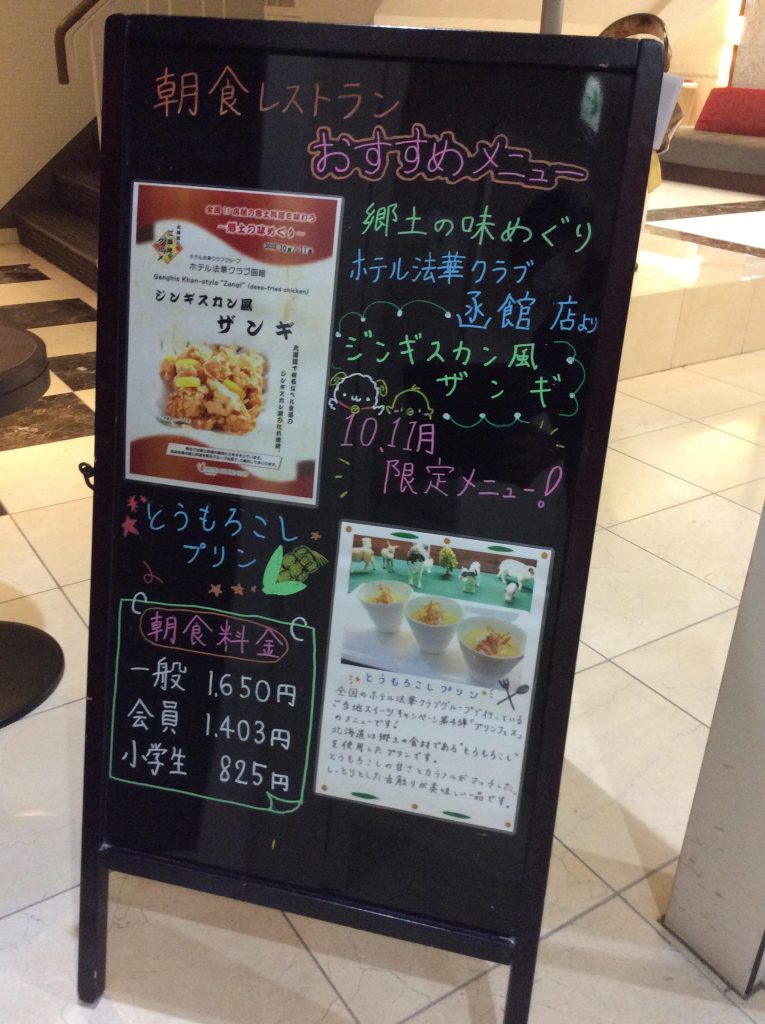 朝食レストラン
おすすめメニュー
郷土の味めぐり
ホテル法華クラブ
函館店より
ジンギスカン風
ザンギ
10.11月
限定メニュー!
全国19店舗の郷土料理を味わう
〜郷土の味めぐり〜
10月/11月
ホテル法華クラブグループ
ホテル法華クラブ函館
Genghis Khan-style "Zangi" (deep-fried chicken)
ジンギスカン風
ザンギ
北海道で有名なベル食品の
とうもろこし
プリン
朝食料金
一般 1,650円
会員 1,403円
小学生 825円
とうもろこしプリン
全国のホテル法華クラブグループで行っている
ご当地スイーツキャンペーン第4弾「プリンフェス」
のメニューです!
北海道は郷土の食材である"とうもろこし"
を使用したプリンです。
とうもろこしの甘さとカラメルがマッチした、
しっとりとした舌触りが美味しい一品です。